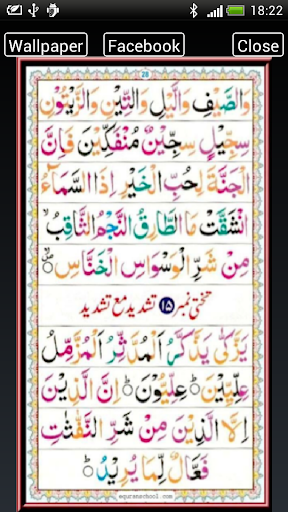 18:22
Wallpaper Facebook Close
28
وَالصَّيْفِ وَالَّيْلِ وَالتِّيْنِ وَالزَّيْتُوْنِ
سِجِّيْلٍ سِجِّيْنٌ مُنْفَكِّيْنَ فَاِنَّ
الْجَنَّةَ لِحُبِّ الْخَيْرِ اِذَا السَّمَآءُ
انْشَقَّتْ مَا الطَّارِقُ النَّجْمُ الثَّاقِبُ
مِنْ شَرِّ الْوَسْوَاسِ الْخَنَّاسِ
تختی نمبر ۱۵ تشدید مع تشدید
يَزَّكّٰى يَذَّكَّرُ الْمُدَّثِّرُ الْمُزَّمِّلُ
عِلِّيِّيْنَ عِلِّيُّوْنَ اِنَّ الَّذِيْنَ
اِلَّا الَّذِيْنَ مِنْ شَرِّ النَّفّٰثٰتِ
فَعَّالٌ لِّمَا يُرِيْدُ
equranschool.com